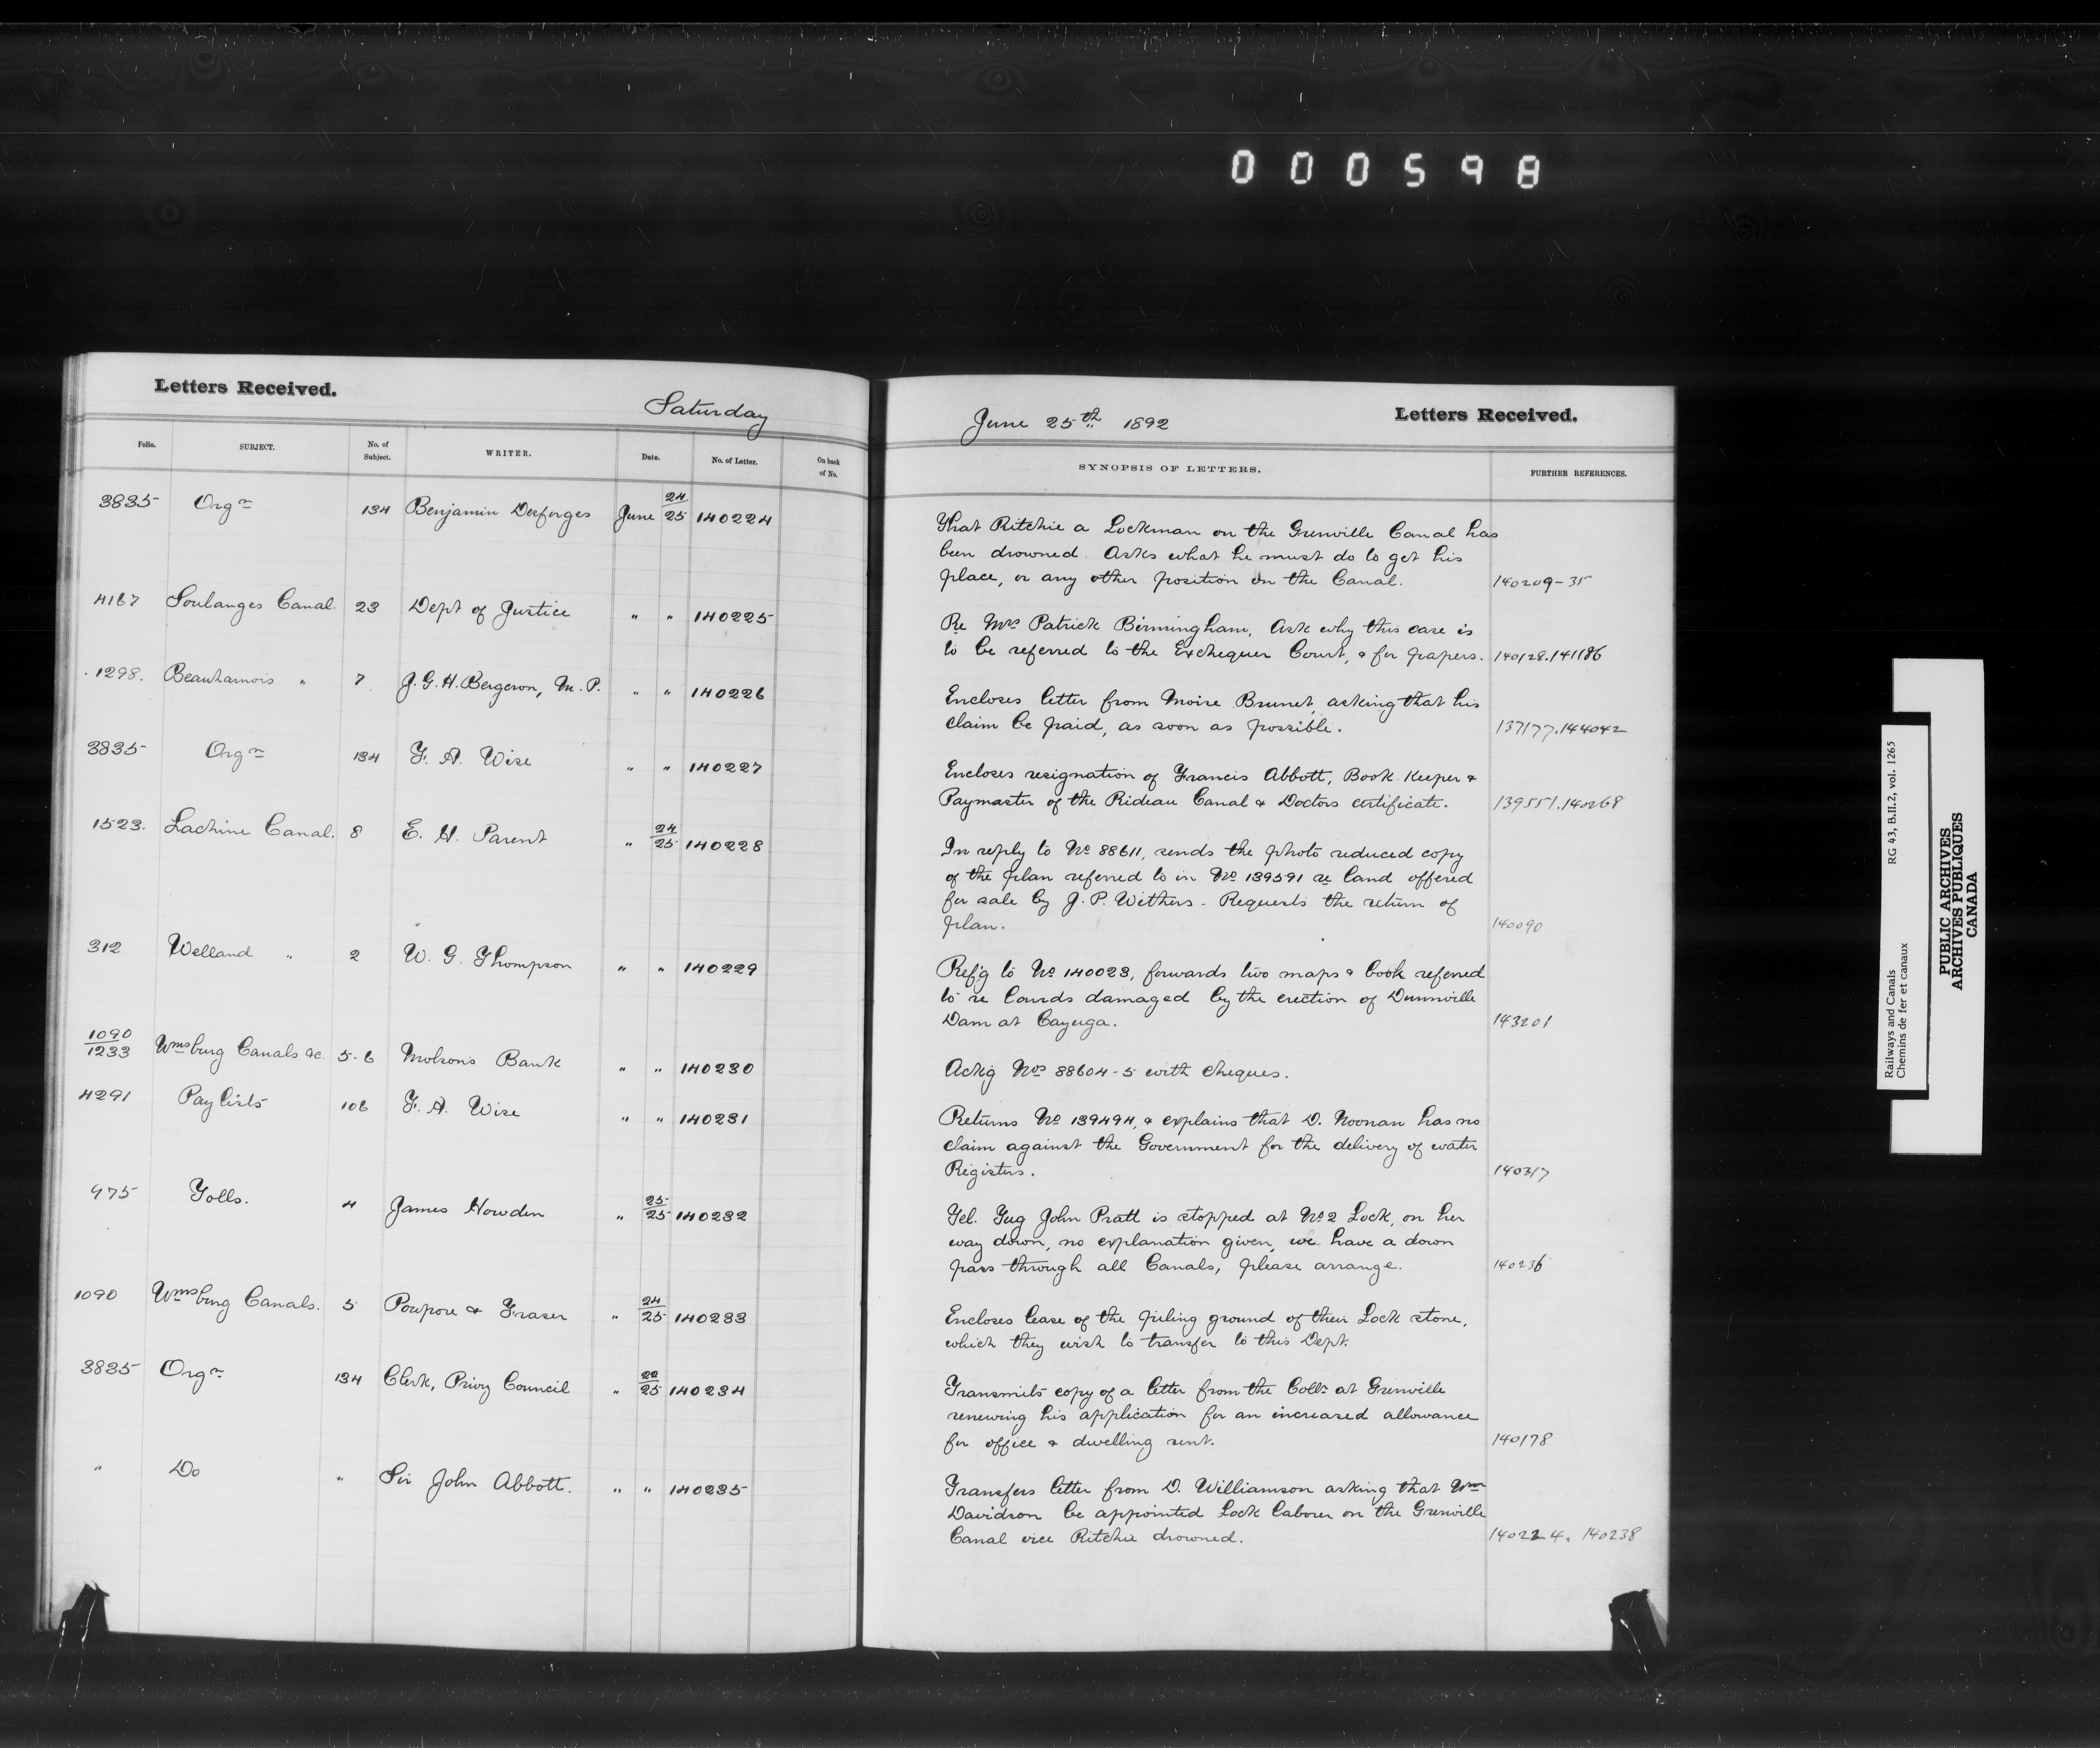 000598
Letters Received.
Saturday
Folio. SUBJECT. No. of Subject. WRITER. Date. No. of Letter. On back of No.
3835 Orgn 134 Benjamin Desforges June 24/25 140224
4167 Soulanges Canal. 23 Dept of Justice " " 140225
1298. Beauharnois " 7 J. G. H. Bergeron, M. P. " " 140226
3835 Orgn 134 F. A. Wise " " 140227
1523. Lachine Canal. 8 E. H. Parent " 24/25 140228
312 Welland " 2 W. G. Thompson " " 140229
1090/1233 Wmsburg Canals &c. 5-6 Molsons Bank " " 140230
4291 Pay lists 106 F. A. Wise " " 140231
975 Tolls. 4 James Howden " 25/25 140232
1090 Wmsburg Canals. 5 Poupore & Fraser " 24/25 140233
3835 Orgn 134 Clerk, Privy Council " 22/25 140234
" Do " Sir John Abbott. " " 140235
June 25th 1892
Letters Received.
SYNOPSIS OF LETTERS. FURTHER REFERENCES.
That Ritchie a Lockman on the Grenville Canal has
been drowned. Asks what he must do to get his
place, or any other position on the Canal. 140209-35
Re Mrs Patrick Birmingham, Ask why this case is
to be referred to the Exchequer Court, & for papers. 140128.141186
Encloses letter from Moise Brunet, asking that his
claim be paid, as soon as possible. 137177.144042
Encloses resignation of Francis Abbott, Book Keeper &
Paymaster of the Rideau Canal & Doctors certificate. 139551.140268
In reply to No 88611, sends the photo reduced copy
of the plan referred to in No 139591 re land offered
for sale by J. P. Withers - Requests the return of
plan. 140090
Ref'g to No 140023, forwards two maps & book referred
to re lands damaged by the erection of Dunnville
Dam at Cayuga. 143201
Ackg Nos 88604-5 with cheques.
Returns No 139494, & explains that D. Noonan has no
claim against the Government for the delivery of water
Registers. 140317
Tel. Tug John Pratt is stopped at No 2 Lock, on her
way down, no explanation given, we have a down
pass through all Canals, please arrange. 140236
Encloses lease of the piling ground of their Lock stone,
which they wish to transfer to this Dept.
Transmits copy of a letter from the Collr at Grenville
renewing his application for an increased allowance
for office & dwelling rent. 140178
Transfers letter from D. Williamson asking that Wm
Davidson be appointed Lock labourer on the Grenville
Canal vice Ritchie drowned. 140224. 140238
Railways and Canals RG 43, B.II.2, vol. 1265
Chemins de fer et canaux
PUBLIC ARCHIVES
ARCHIVES PUBLIQUES
CANADA